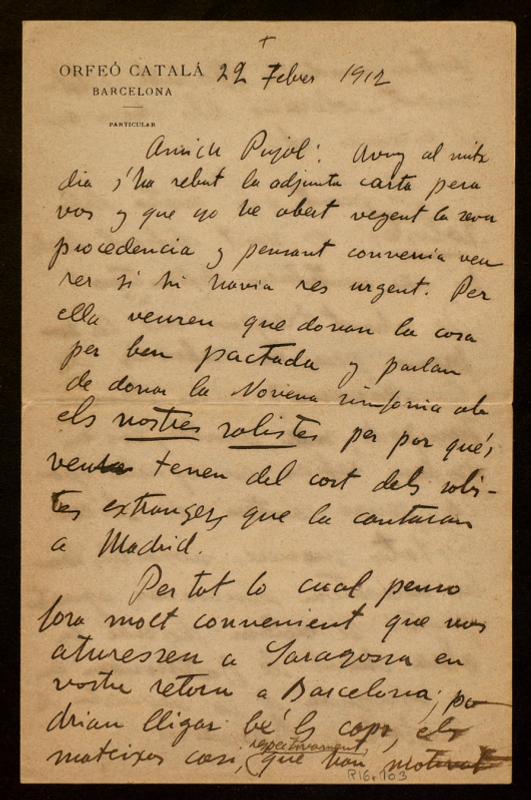 ORFEÓ CATALÁ
BARCELONA
PARTICULAR
22 Febrer 1912
Amich Pujol: Avuy al mitx
dia s'ha rebut la adjunta carta pera
vos y que yo he obert vegent la seva
procedencia y pensant convenia veu
rer si hi havia res urgent. Per
ella veuren que donan la cosa
per ben pactada y parlan
de donar la Novena sinfonia ab
els nostres solistes per por que's
tenen del cost dels solis-
tes extrangers que la cantaran
a Madrid.
Per tot lo cual penso
fora molt convenient que vos
aturessen a Saragossa en
vostre retorn a Barcelona; po
drian lligar bé els caps, els
mateixos casi, respectivament, que han
R16.703